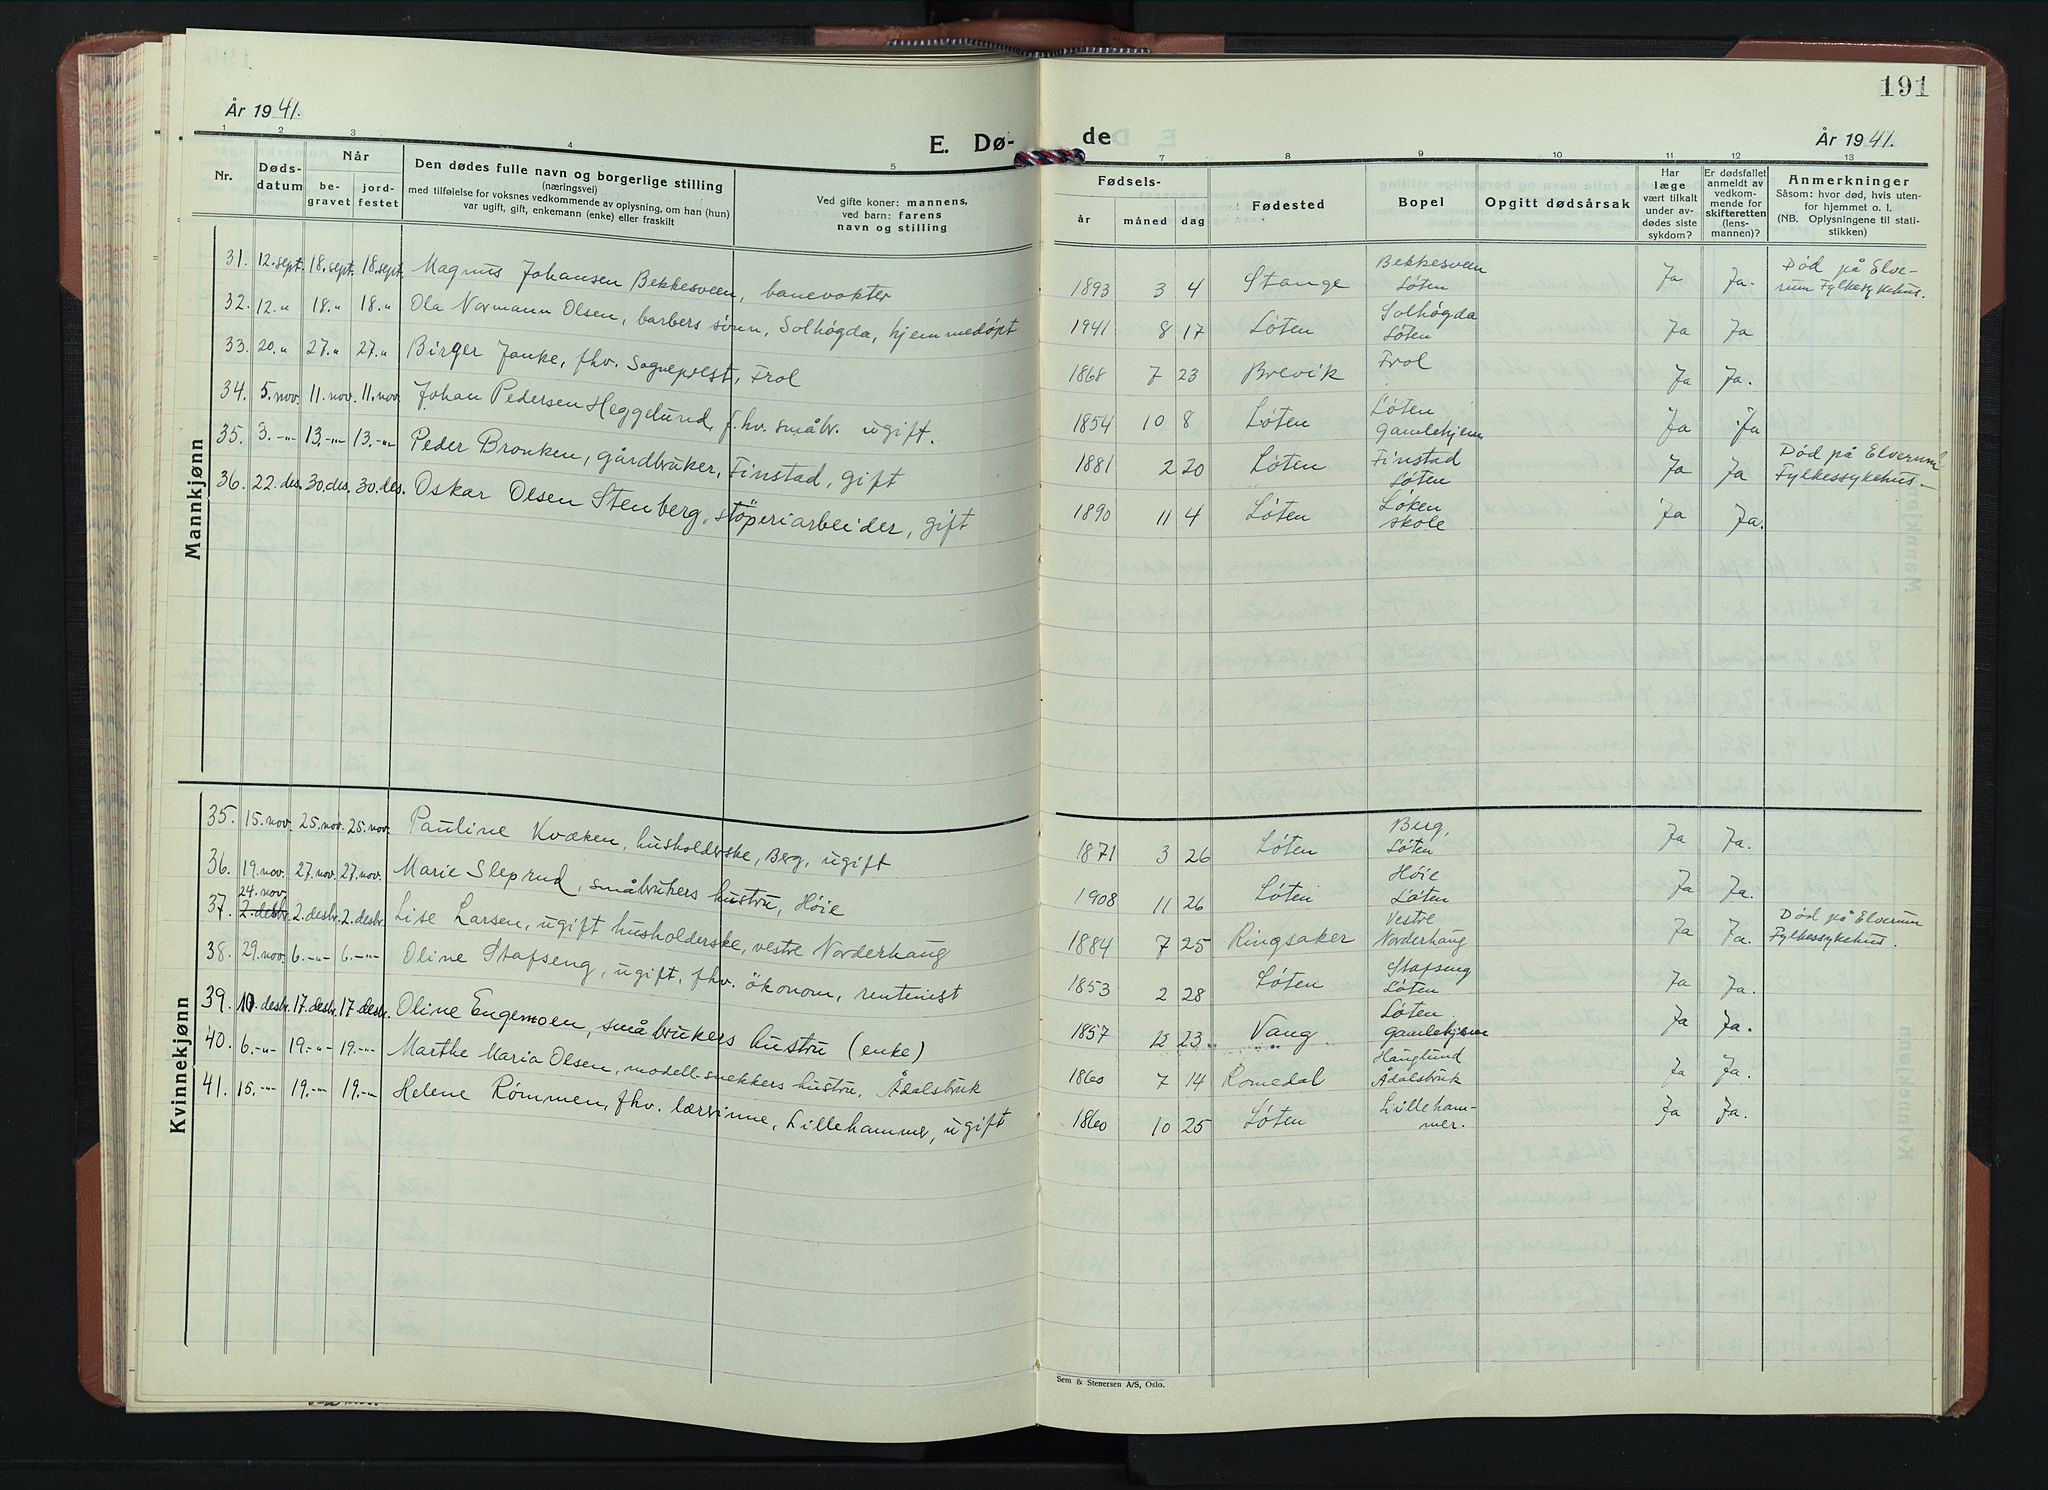 191
År 1941.
E. Dø-
de
År 1941.
1 2 3 4 5 7 8 9 10 11 12 13
Nr.
Døds-
datum
Når
be-
gravet
jord-
festet
Den dødes fulle navn og borgerlige stilling
(næringsvei)
med tilføielse for voksnes vedkommende av oplysning, om han (hun)
var ugift, gift, enkemann (enke) eller fraskilt
Ved gifte koner: mannens,
ved barn: farens
navn og stilling
Fødsels-
år måned dag
Fødested
Bopel
Opgitt dødsårsak
Har
læge
vært tilkalt
under av-
dødes siste
sykdom?
Er dødsfallet
anmeldt av
vedkom-
mende for
skifteretten
(lens-
mannen)?
Anmerkninger
Såsom: hvor død, hvis uten-
for hjemmet o. l.
(NB. Oplysningene til stati-
stikken)
Mannkjønn
31. 12. sept. 18. sept. 18. sept. Magnus Johansen Bekkesveen, banevokter 1893 3 4 Stange Bekkesveen Løten Ja Ja. Død på Elve-
rum Fylkesykehus.
32. 12. " 18. " 18. " Ola Normann Olsen, barbers sønn, Solhøgda, hjemmedøpt 1941 8 17 Løten Solhøgda Løten Ja Ja
33. 20. " 27. " 27. " Birger Janke, fhv. Sogneprest, Frol 1868 7 23 Brevik Frol Ja Ja.
34. 5. nov. 11. nov. 11. nov. Johan Pedersen Heggelund, f.hv. småbr. ugift. 1854 10 8 Løten Løten Gamlehjem Ja Ja
35. 3. -"- 13. -"- 13. -"- Peder Bronken, gårdbruker, Finstad, gift 1881 2 20 Løten Finstad Løten Ja Ja Død på Elverum
Fylkessykehus.
36. 22. des. 30. des. 30. des. Oskar Olsen Stenberg, støperiarbeider, gift 1890 11 4 Løten Løken skole Ja Ja.
Kvinnekjønn
35. 15. nov. 25. nov. 25. nov. Pauline Kvæken, husholderske, Berg, ugift 1871 3 26 Løten Berg, Løten Ja Ja.
36. 19. nov. 27. nov. 27. nov. Marie Sleprud, småbrukers hustru, Høie 1908 11 26 Løten Høie Løten Ja Ja.
24. nov.
37. 2. desbr. 2. desbr. 2. desbr. Lise Larsen, ugift husholderske, vestre Norderhaug 1884 7 25 Ringsaker Vestre Norderhaug Ja Ja. Død på Elverum
Fylkessykehus.
38. 29. nov. 6. -"- 6. -"- Oline Stafseng, ugift, fhv. økonom, rentenist 1853 2 28 Løten Stafseng Løten Ja Ja.
39. 10. desbr. 17. desbr. 17. desbr. Oline Engemoen, småbrukers hustru (enke) 1857 12 23 Vang Løten Gamlehjem Ja Ja.
40. 6. -"- 19. -"- 19. -"- Marthe Maria Olsen, modell-snekkers hustru, Ådalsbruk 1860 7 14 Romedal Hauglund Ådalsbruk Ja Ja.
41. 15. -"- 19. -"- 19. -"- Helene Rømmen, fhv. lærerinne, Lillehammer, ugift 1860 10 25 Løten Lilleham-
mer. Ja Ja.
Sem & Stenersen A/S, Oslo.